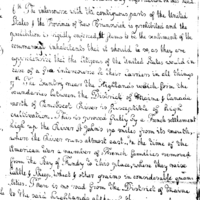 of the intercourse with the contiguous parts of the United
States & the Province of New Brunswick is prohibited and the
prohibition is rigidly enforced, it seems to be the sentiment of the
commercial inhabitants that it should be so, as they are
apprehensive that the citizens of the United States would in
case of a free intercourse be their carriers in all things
The Country near the Highlands which form the
boundary between the District of Maine & Canada
north of Penobscot River is susceptible of high
cultivation. This is proved fully by a French settlement
high up the River St John's 140 miles from its mouth,
where the River runs almost east. In the time of the
American war a number of French families removed
from the Bay of Fundy to this place, where they raise
cattle, sheep, wheat & other grains in considerable quan-
tities. There is no road from the District of Maine
to the said Highlands